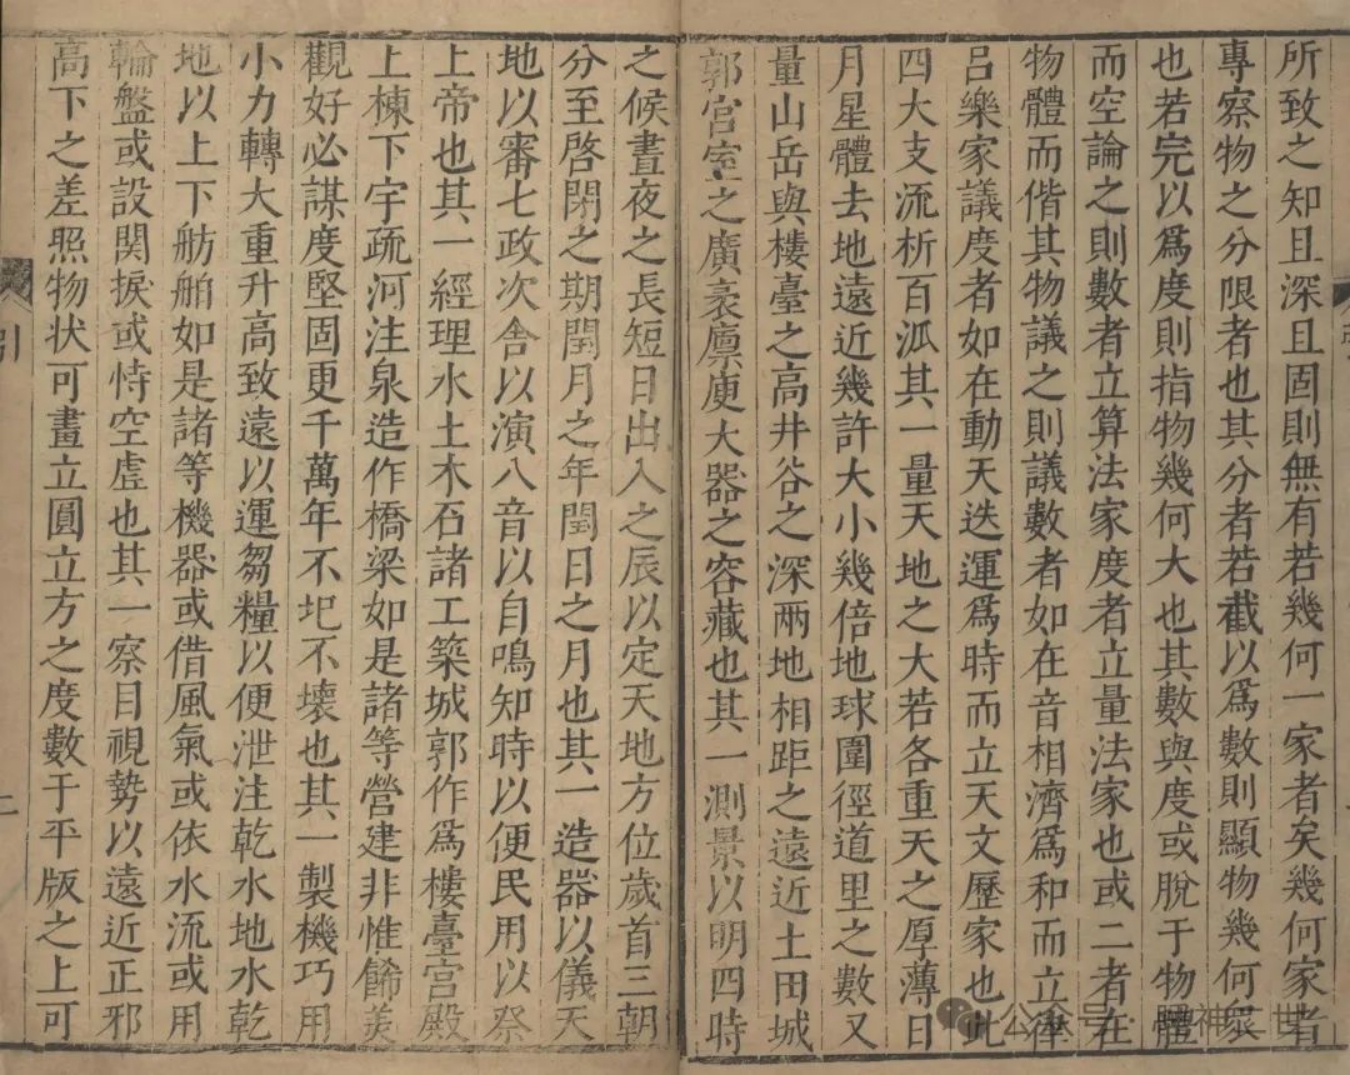 所致之知且深且固則無有若幾何一家者矣幾何家者
專察物之分限者也其分者若截以爲數則顯物幾何衆
也若完以爲度則指物幾何大也其數與度或脫于物體
而空論之則數者立算法家度者立量法家也或二者在
物體而偕其物議之則議數者如在音相濟爲和而立律
呂樂家議度者如在動天迭運爲時而立天文歷家也此
四大支流析百派其一量天地之大若各重天之厚薄日
月星體去地遠近幾許大小幾倍地球圍徑道里之數又
量山岳與樓臺之高井谷之深兩地相距之遠近土田城
郭宮室之廣袤廩庾大器之容藏也其一測景以明四時
之候晝夜之長短日出入之辰以定天地方位歲首三朝
分至啓閉之期閏月之年閏日之月也其一造器以儀天
地以審七政次舍以演八音以自鳴知時以便民用以祭
上帝也其一經理水土木石諸工築城郭作爲樓臺宮殿
上棟下宇疏河注泉造作橋梁如是諸等營建非惟飾美
觀好必謀度堅固更千萬年不圮不壞也其一製機巧用
小力轉大重升高致遠以運芻糧以便泄注乾水地水乾
地以上下舫舶如是諸等機器或借風氣或依水流或用
輪盤或設関捩或恃空虛也其一察目視勢以遠近正邪
高下之差照物状可畫立圓立方之度數于平版之上可
引
二
公众号
世